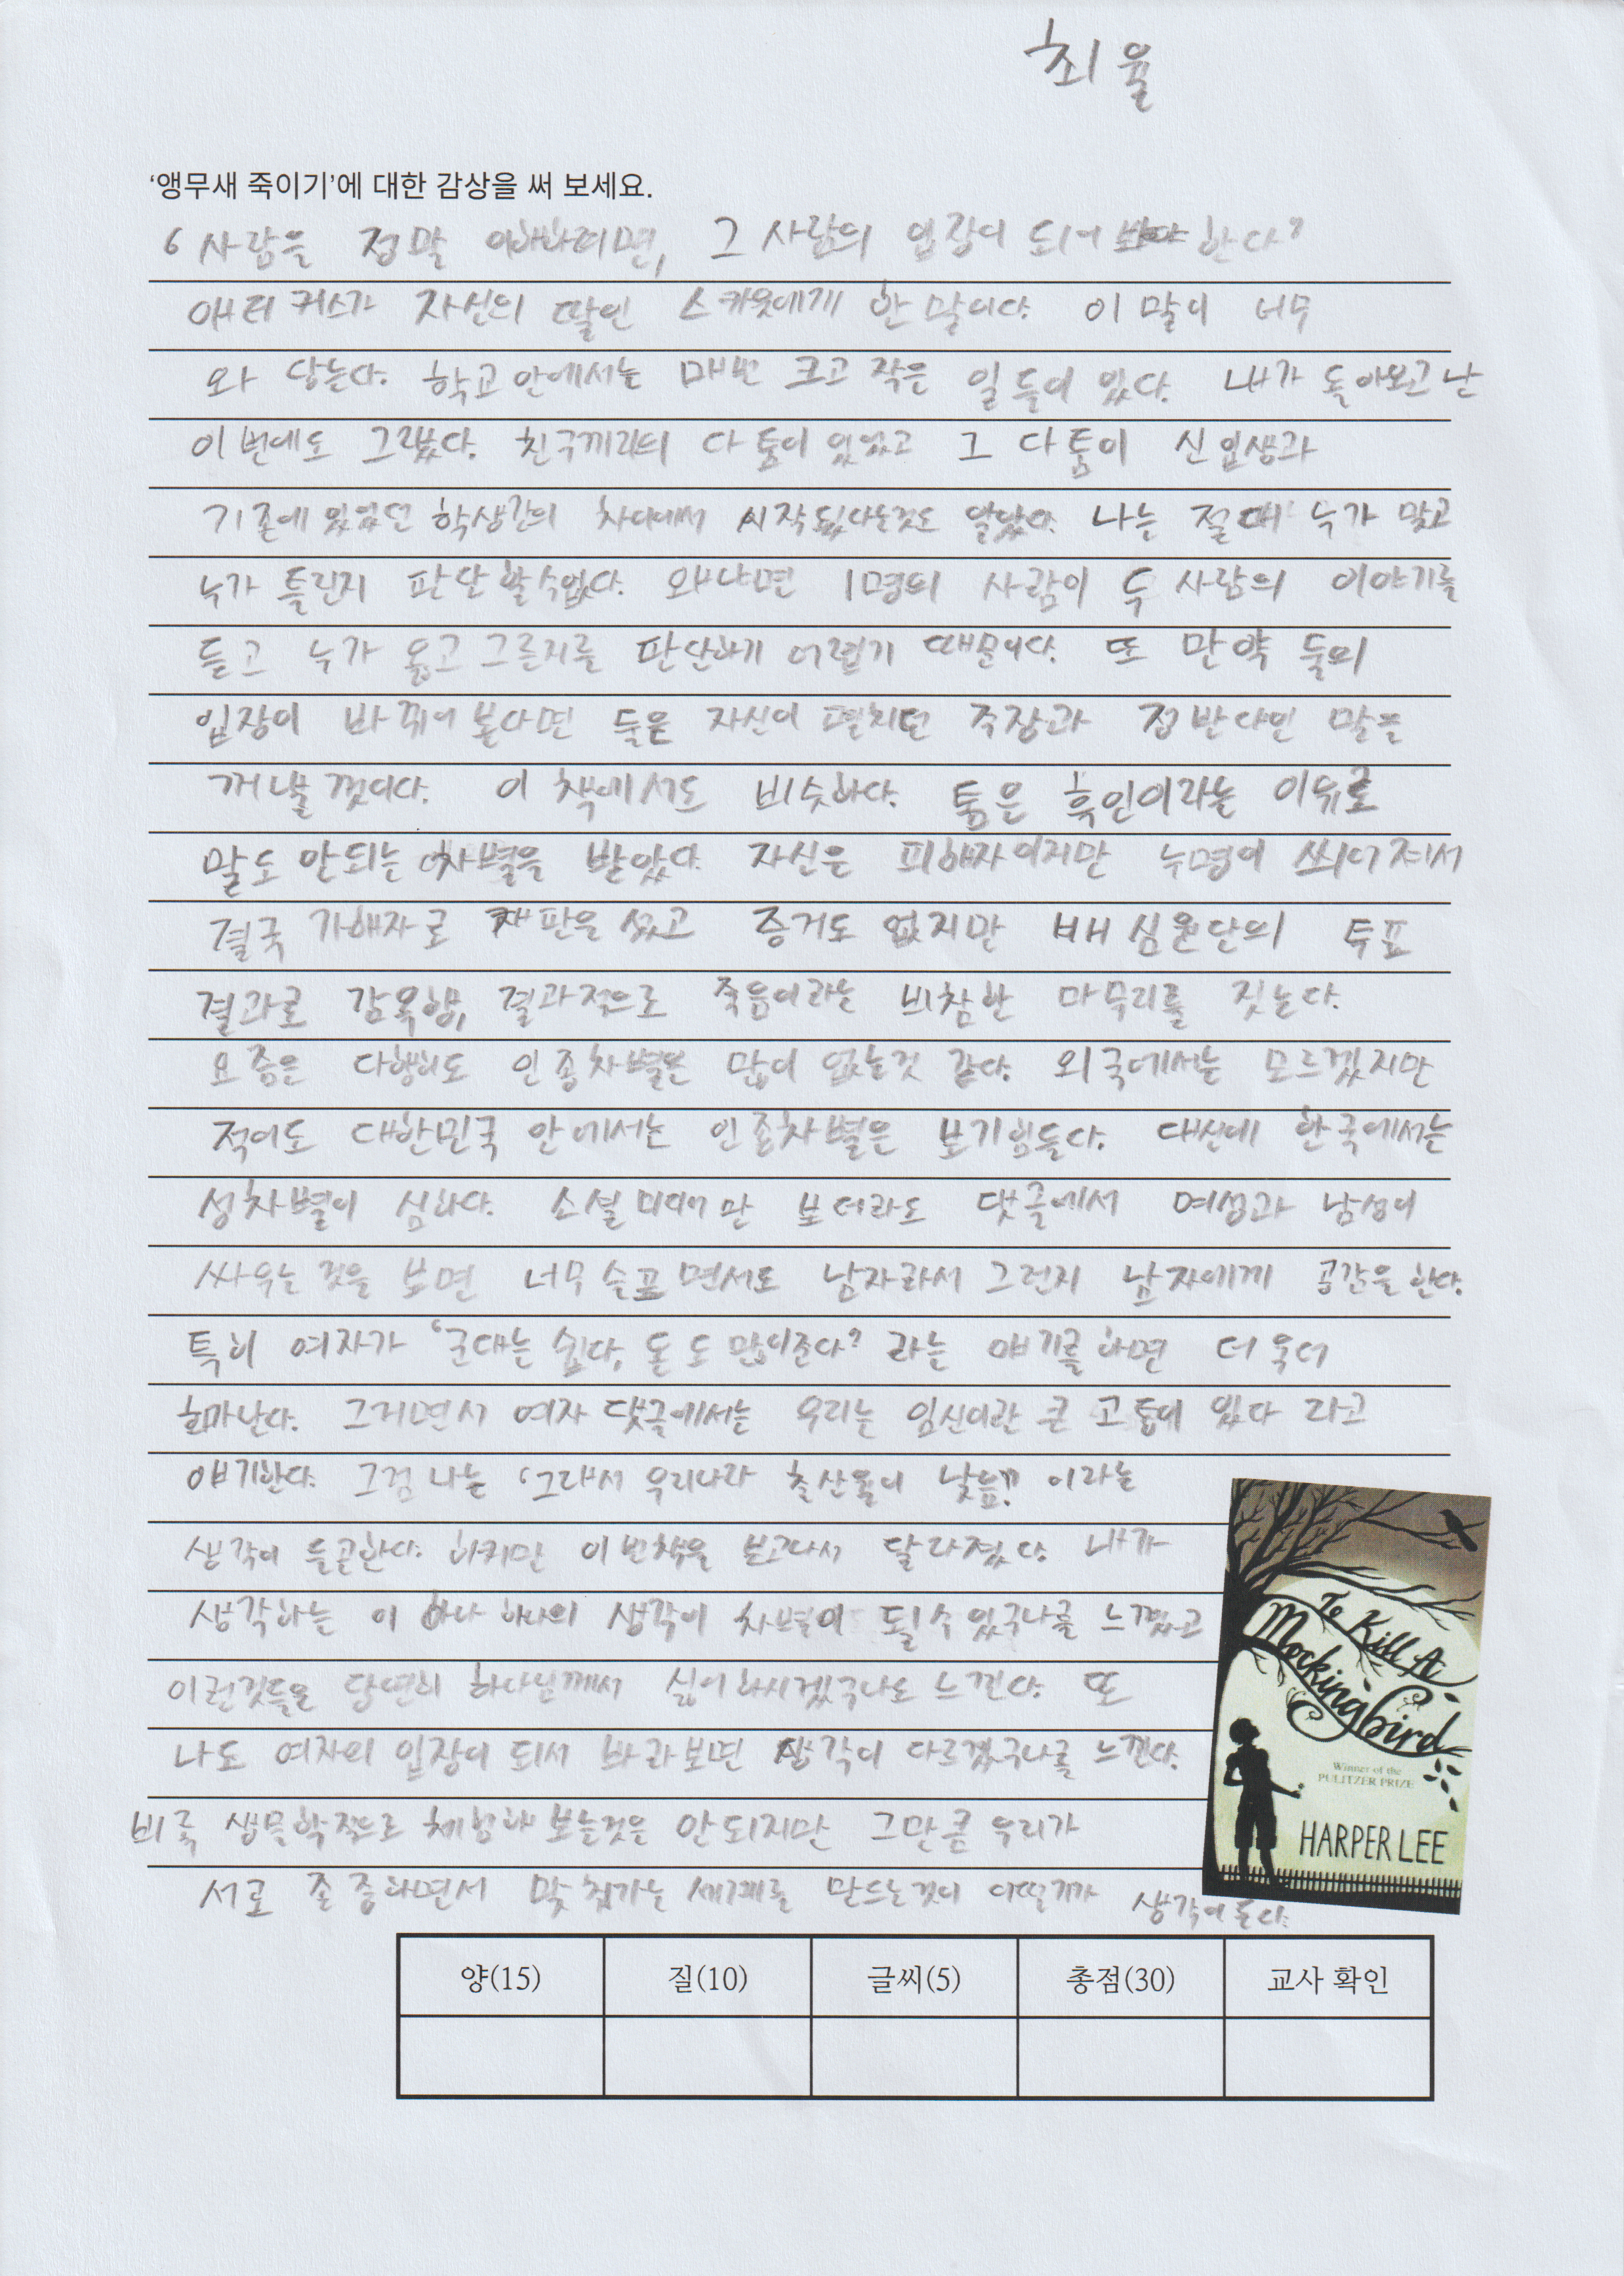 최율
‘앵무새 죽이기’에 대한 감상을 써 보세요.
‘사람을 정말 이해하려면, 그 사람의 입장이 되어 봐야 한다’
애티커스가 자신의 딸인 스카웃에게 한 말이다. 이 말이 너무
와 닿는다. 학교 안에서는 매번 크고 작은 일들이 있다. 내가 돌아오고 난
이번에도 그랬다. 친구끼리의 다툼이 있었고 그 다툼이 신입생과
기존에 있었던 학생간의 차이에서 시작됬다는것도 알았다. 나는 절대 누가 맞고
누가 틀린지 판단할수없다. 왜냐면 1명의 사람이 두 사람의 이야기를
듣고 누가 옳고 그른지를 판단하기 어렵기 때문이다. 또 만약 둘의
입장이 바뀌어 본다면 둘은 자신이 펼치던 주장과 정반대인 말을
꺼낼 껏이다. 이 책에서도 비슷하다. 톰은 흑인이라는 이유로
말도 안되는 차별을 받았다. 자신은 피해자이지만 누명이 씌어져서
결국 가해자로 재판을 섰고 증거도 없지만 배심원단의 투표
결과로 감옥행, 결과적으로 죽음이라는 비참한 마무리를 짓는다.
요즘은 다행히도 인종차별은 많이 없는것 같다. 외국에서는 모르겠지만
적어도 대한민국 안에서는 인종차별은 보기힘들다. 대신에 한국에서는
성차별이 심하다. 소셜미디어만 보더라도 댓글에서 여성과 남성이
싸우는 것을 보면 너무 슬프면서도 남자라서 그런지 남자에게 공감을 한다.
특히 여자가 ‘군대는 쉽다, 돈도 많이준다’ 라는 얘기를 하면 더욱더
화가난다. 그러면서 여자 댓글에서는 우리는 임신이란 큰 고통이 있다 라고
얘기한다. 그럼 나는 ‘그래서 우리나라 출산율이 낮늠?’ 이라는
생각이 들곤한다. 하지만 이번책을 보고나서 달라졌다. 내가
생각하는 이 하나 하나의 생각이 차별이 될수 있구나를 느꼈고
이런것들을 당연히 하나님께서 싫어하시겠구나도 느낀다. 또
나도 여자의 입장이 되서 바라보면 생각이 다르겠구나를 느낀다.
비록 생물학적으로 체험해 보는것은 안되지만 그만큼 우리가
서로 존중하면서 맞춰가는 세계를 만드는것이 어떨까가 생각이 든다.
To Kill A
Mockingbird
Winner of the
PULITZER PRIZE
HARPER LEE
양(15) 질(10) 글씨(5) 총점(30) 교사 확인